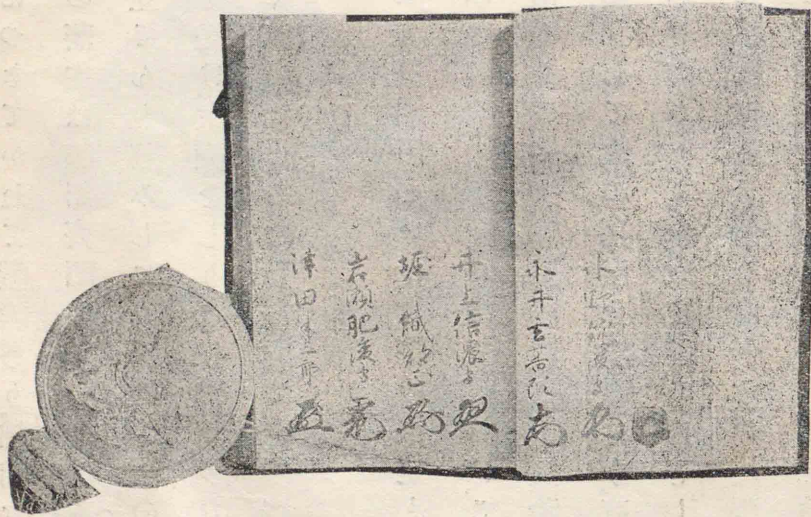 水野筑後守
永井玄蕃頭
井上信濃守
堀織部正
岩瀬肥後守
津田半三郎